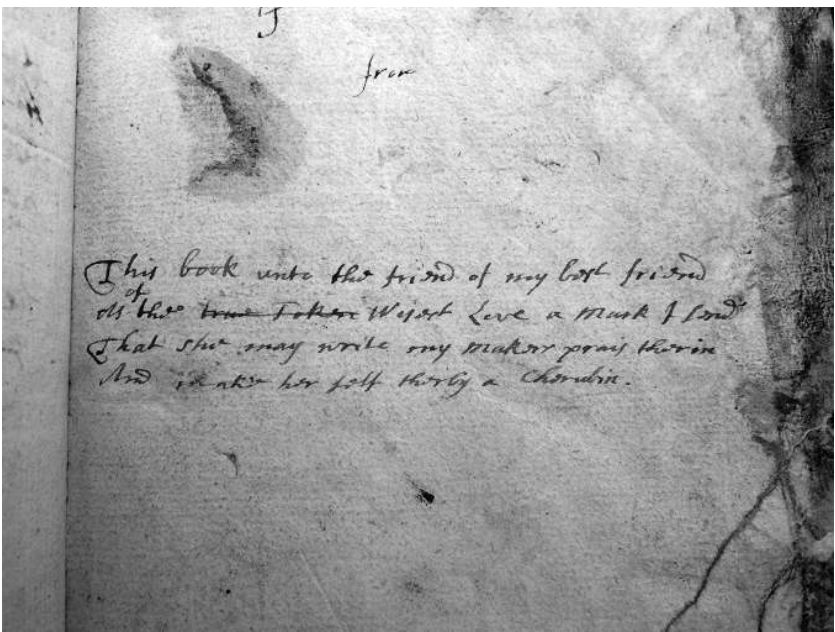 from
This book unto the friend of my best friend
As of the true Token Wisest Love a Mark I send
That she may write my Makers prais therin
And make her self therby a Cherubin.